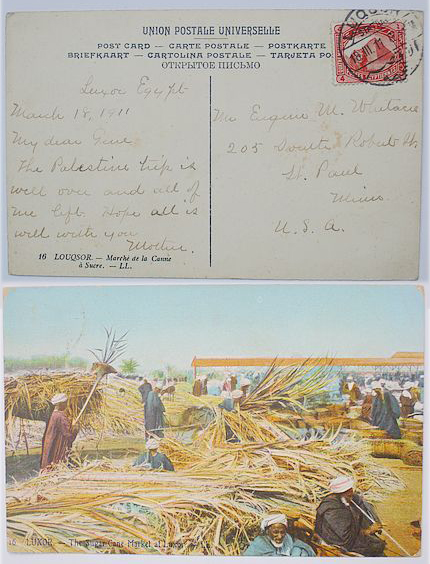 UNION POSTALE UNIVERSELLE
POST CARD — CARTE POSTALE — POSTKARTE
BRIEFKAART — CARTOLINA POSTALE — TARJETA PO
ОТКРЫТОЕ ПИСЬМО
Luxor Egypt
March 18, 1911
My dear Gene
The Palestine trip is
well over and all of
me left. Hope all is
well with you
Mother.
16 LOUQSOR. — Marché de la Canne
à Sucre. — LL.
Mr Eugene M.
205 Robert St.
St. Paul
Minn.
U. S. A.
16 LUXOR. — The Sugar Cane Market at Luxor. — LL.